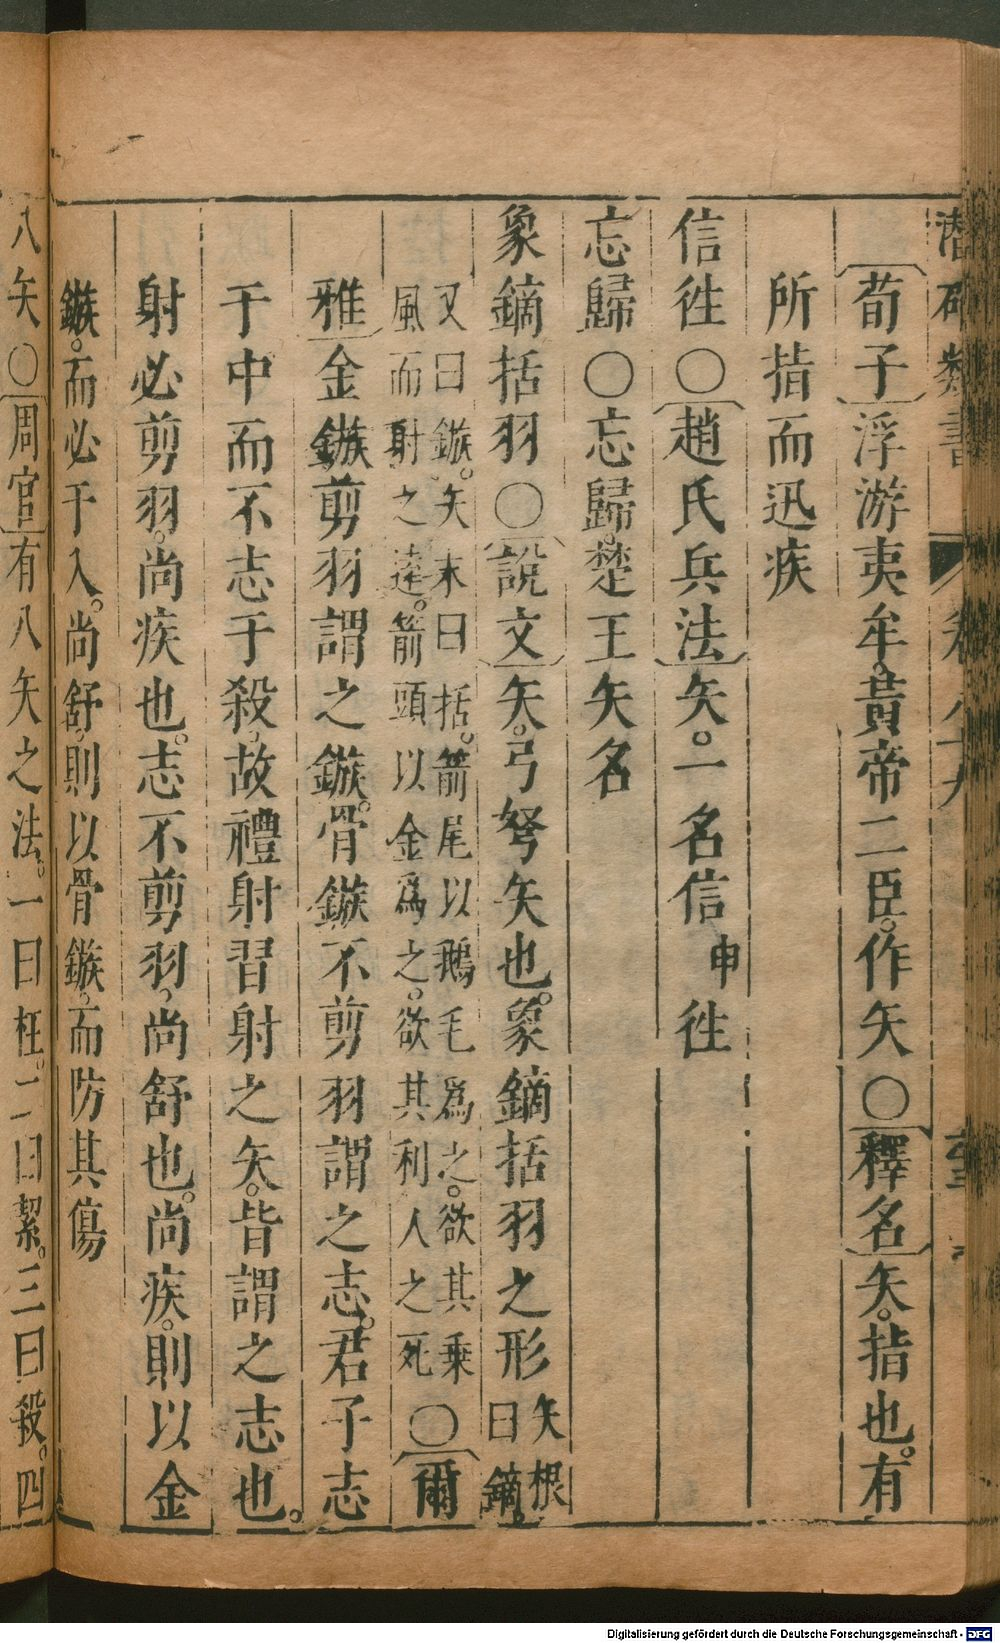 潛确類書 卷八十九
〔荀子〕浮游夷牟。黃帝二臣。作矢〇〔釋名〕矢。指也。有
所指而迅疾
信徃〇〔趙氏兵法〕矢。一名信申徃
忘歸〇忘歸。楚王矢名
象鏑括羽〇〔說文〕矢。弓弩矢也。象鏑括羽之形矢根曰鏑。
又曰鏃。矢末曰括。箭尾以鵝毛爲之。欲其乗
風而射之遠。箭頭以金爲之。欲其利人之死〇〔爾
雅〕金鏃剪羽謂之鏃。骨鏃不剪羽謂之志。君子志
于中而不志于殺。故禮射習射之矢。皆謂之志也。
射必剪羽。尚疾也。志不剪羽。尚舒也。尚疾。則以金
鏃。而必于入。尚舒。則以骨鏃。而防其傷
八矢〇〔周官〕有八矢之法。一曰枉。二曰絜。三曰殺。四
Digitalisierung gefördert durch die Deutsche Forschungsgemeinschaft - DFG